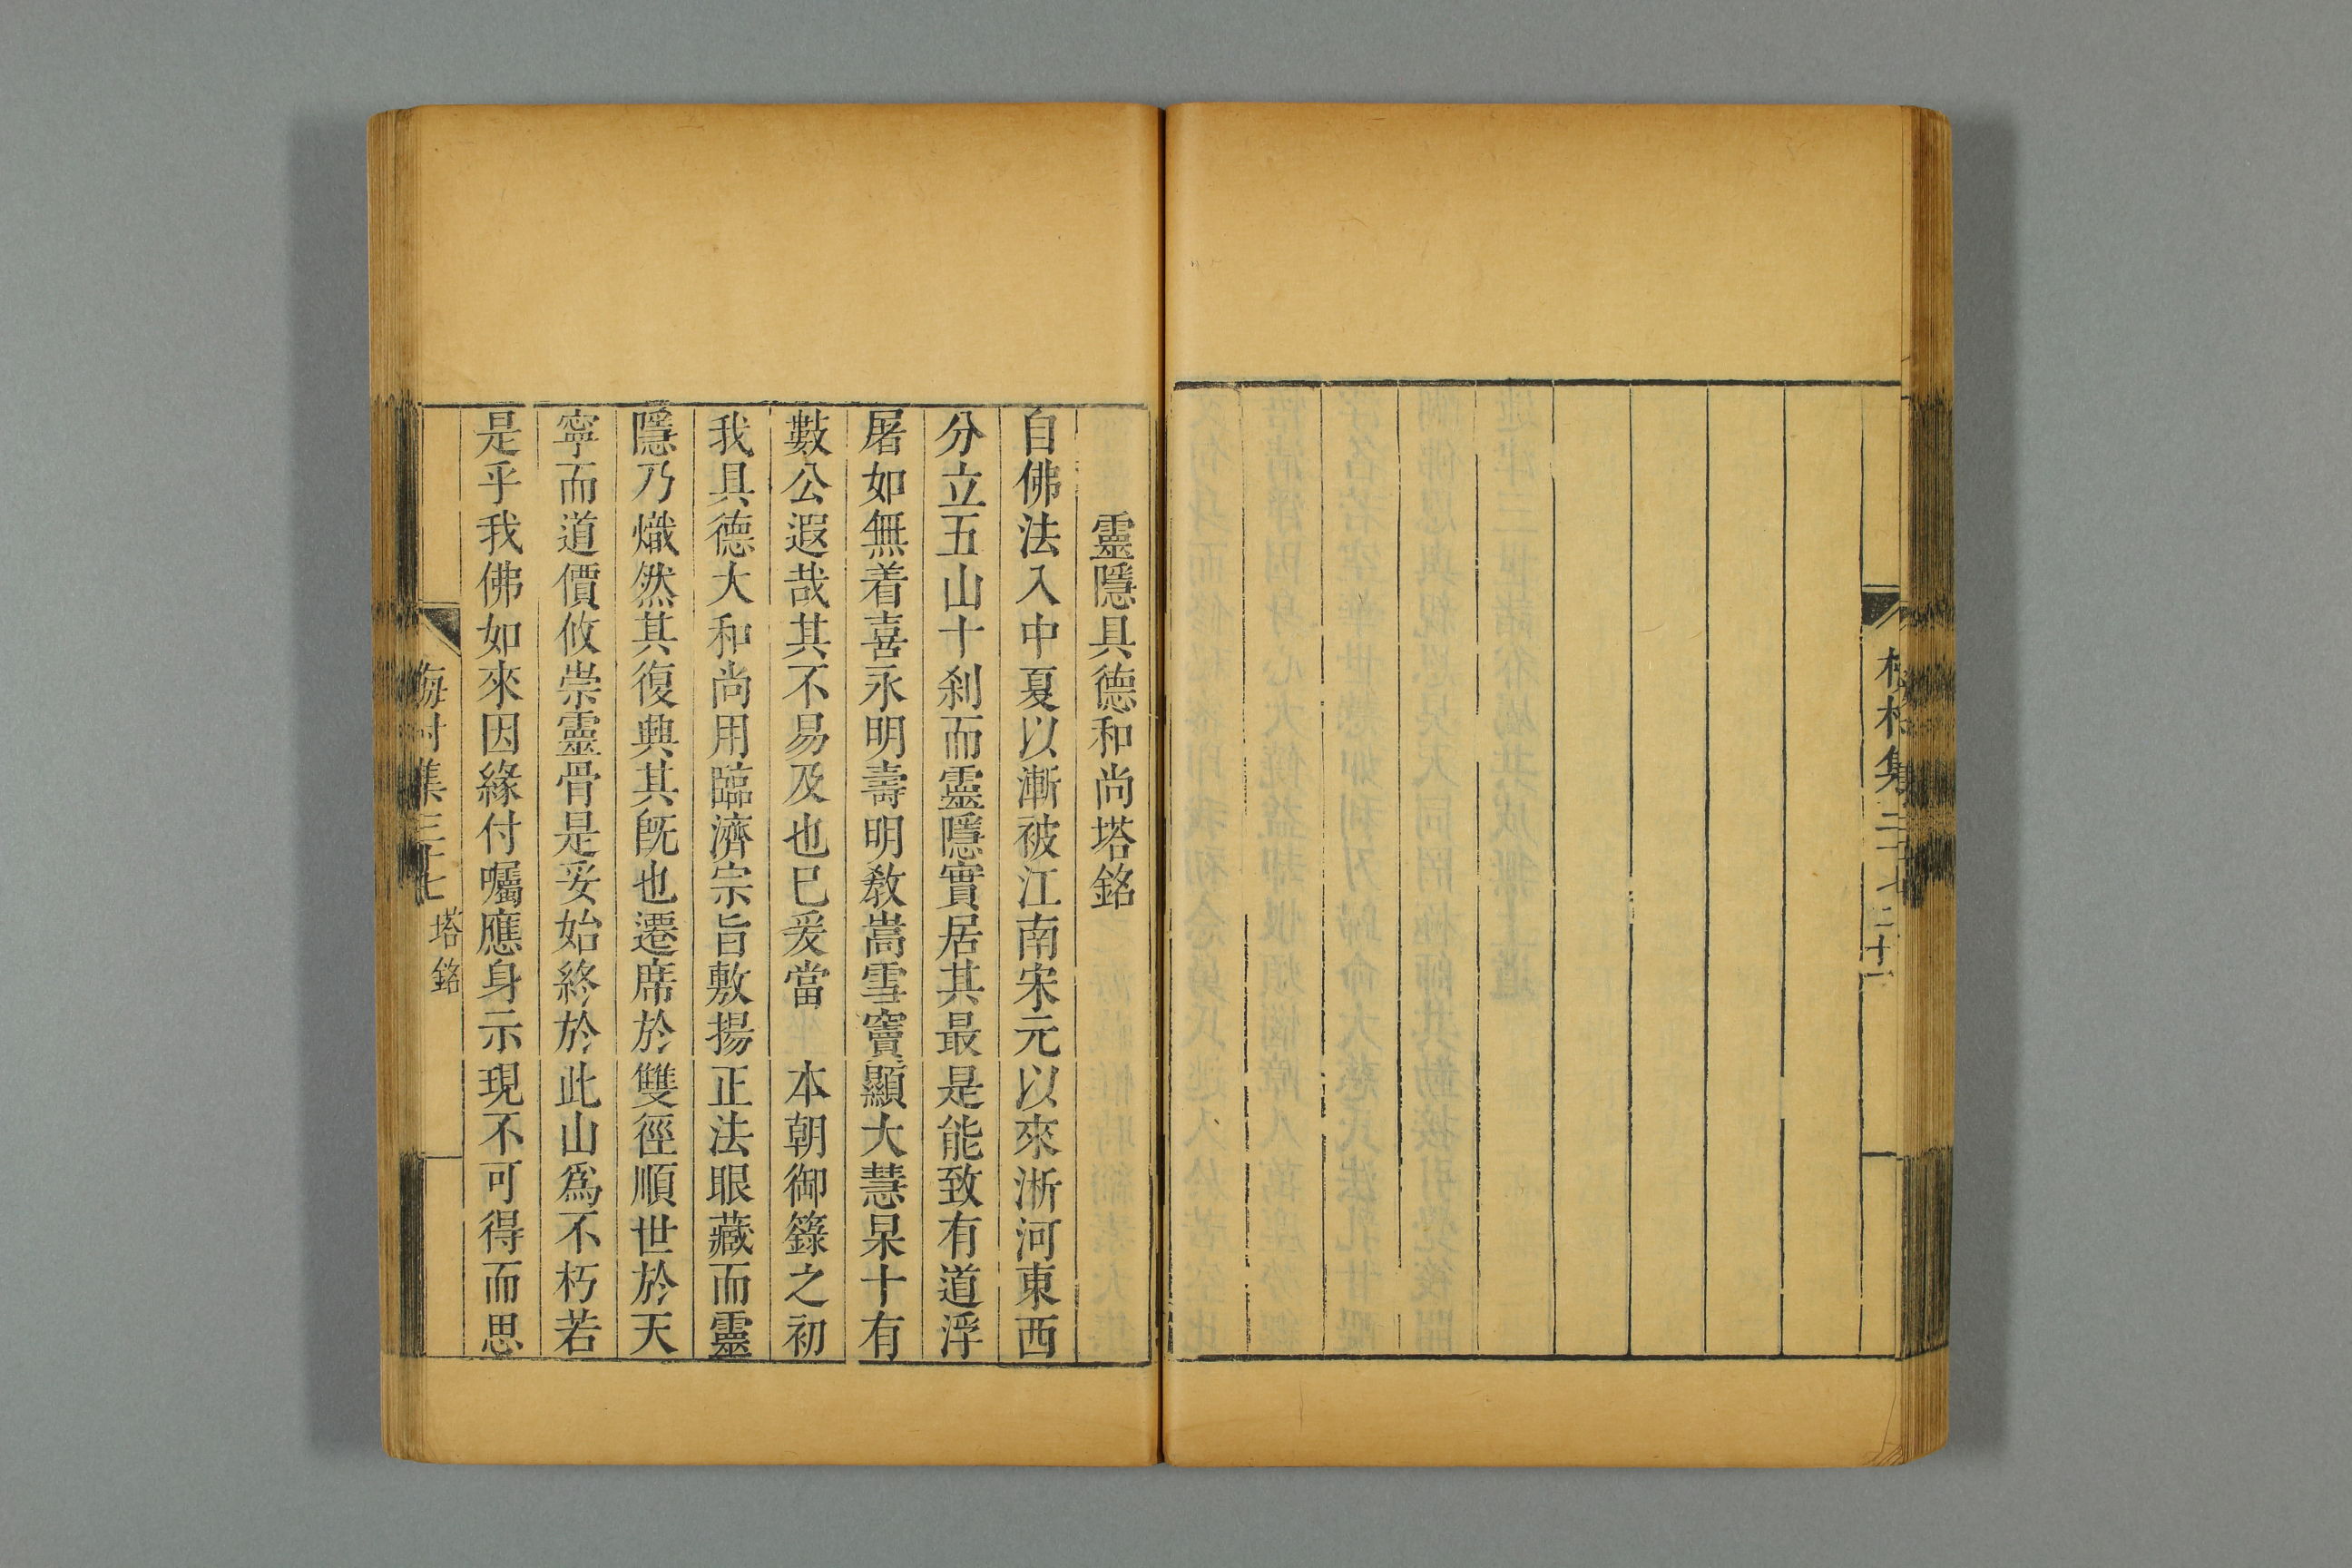 梅村集 三十七 二十一
靈隱具德和尚塔銘
自佛法入中夏以漸被江南宋元以來淅河東西
分立五山十刹而靈隱實居其最是能致有道浮
屠如無着喜永明壽明教嵩雪竇顯大慧杲十有
數公遐哉其不易及也已爰當 本朝御籙之初
我具德大和尚用臨濟宗旨敷揚正法眼藏而靈
隱乃熾然其復興其旣也遷席於雙徑順世於天
寧而道價攸崇靈骨是妥始終於此山爲不朽若
是乎我佛如來因緣付囑應身示現不可得而思
梅村集 三十七 塔銘